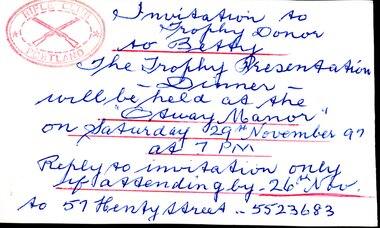 RIFLE CLUB
PORTLAND
Invitation to
Trophy Donor
to Betty
The Trophy Presentation
- Dinner -
will be held at the
"Otway Manor"
on Saturday 29th November 97
at 7 PM
Reply to invitation only
if attending by - 26th Nov.
to 57 Henty Street - 5523683